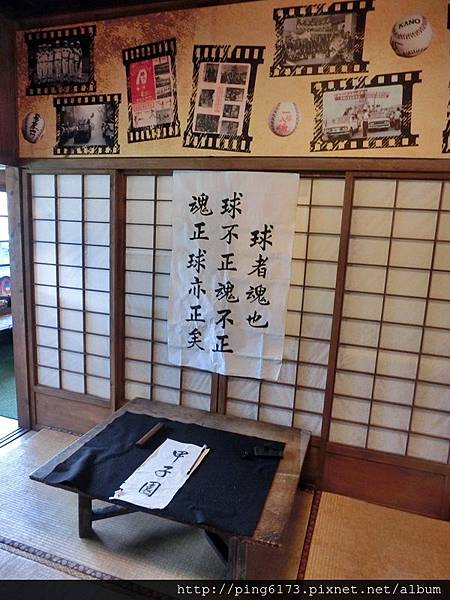 KANO
球者魂也
球不正魂不正
魂正球亦正矣
甲子園
http://ping6173.pixnet.net/album